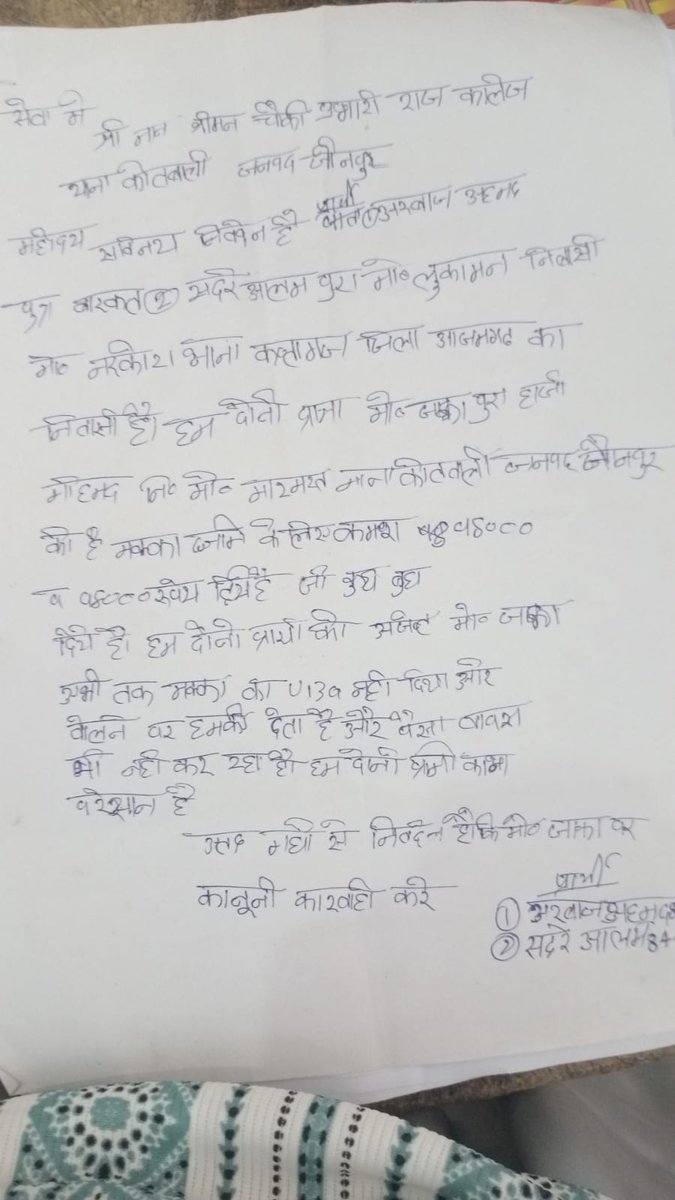 सेवा मे
श्री मान श्रीमन चौकी प्रभारी राज कालेज
थाना कोतवाली जनपद जौनपुर
महोदय सविनय निवेदन है प्रार्थी अरबाज अहमद
पुत्र बरकत (2) सदरे आलम पुत्र मो० लुकमान निवासी
मो० थाना जिला आजमगढ का
निवासी है। हम दोनो मो० पुत्र हाजी
मोहम्मद नि० मो० थाना कोतवाली जनपद जौनपुर
को है मक्का के लिए क्रमश
व रुपये दिये है जो कुछ कुछ
दिये है। हम दोनो प्रार्थी को मो०
अभी तक मक्का का नही दिया और
बोलने पर धमकी देता है और पैसा वापस
भी नही कर रहा है। हम दोनो प्रार्थी काफी
परेसान है
अतः से निवेदन है कि मो० पर
कानूनी कारवाही करे
प्रार्थी
① अरबाज अहमद
② सदरे आलम